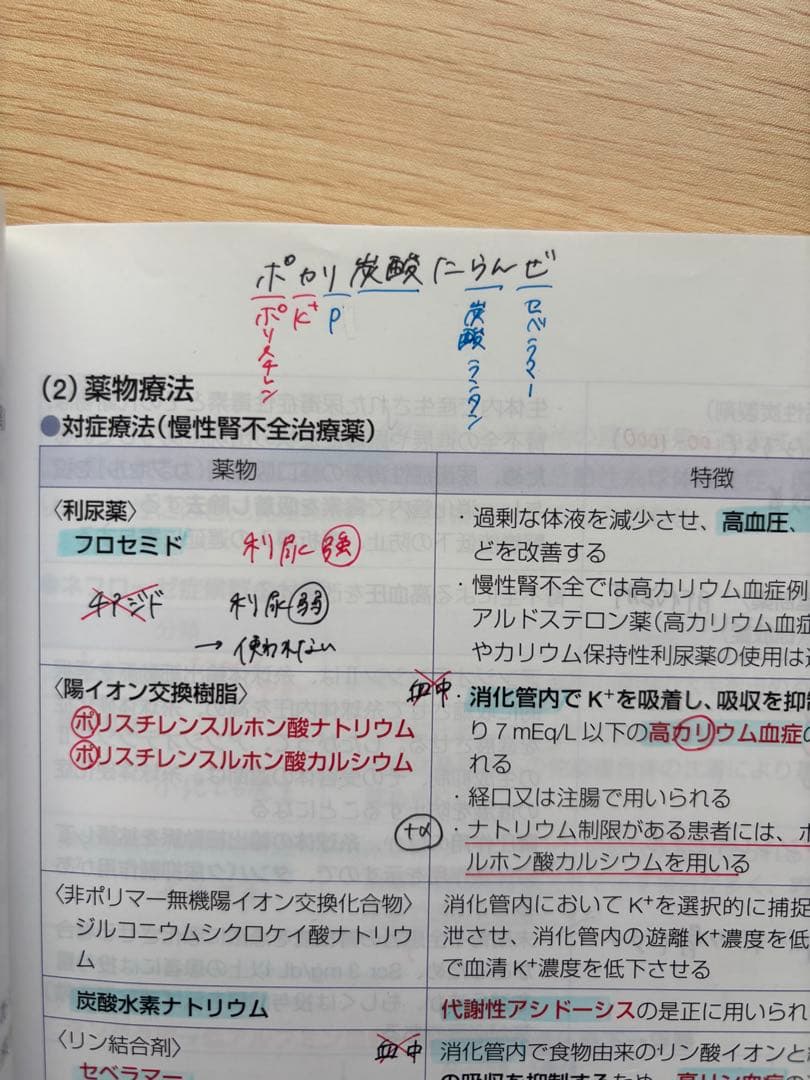 ポカリ炭酸にらんぜ
ポリスチレン K⁺ P 炭酸ランタン セベラマー
(2) 薬物療法
●対症療法(慢性腎不全治療薬)
薬物 特徴
〈利尿薬〉
フロセミド 利尿強
チアジド 利尿弱
→使われない
・過剰な体液を減少させ、高血圧、
どを改善する
・慢性腎不全では高カリウム血症例
アルドステロン薬(高カリウム血症
やカリウム保持性利尿薬の使用は
〈陽イオン交換樹脂〉
ポリスチレンスルホン酸ナトリウム
ポリスチレンスルホン酸カルシウム
血中
・消化管内でK⁺を吸着し、吸収を抑
り7 mEq/L以下の高カリウム血症の
れる
・経口又は注腸で用いられる
+α
・ナトリウム制限がある患者には、ポ
ルホン酸カルシウムを用いる
〈非ポリマー無機陽イオン交換化合物〉
ジルコニウムシクロケイ酸ナトリウ
ム
消化管内においてK⁺を選択的に捕捉
泄させ、消化管内の遊離K⁺濃度を低
で血清K⁺濃度を低下させる
炭酸水素ナトリウム 代謝性アシドーシスの是正に用いられ
〈リン結合剤〉
セベラマー
血中
消化管内で食物由来のリン酸イオンと
の吸収を抑制するため、高リン血症の